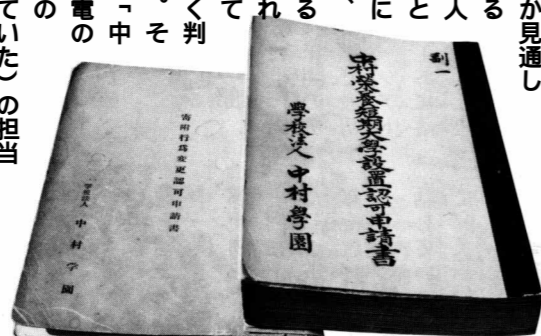 が見通し
る
人
と
に
、
る
れ
て
く判
。そ
「中
電の
の
ていた）の担当
副一
中村榮養短期大學設置認可申請書
學校法人 中村學園
寄附行爲変更認可申請書
學校法人 中村学園